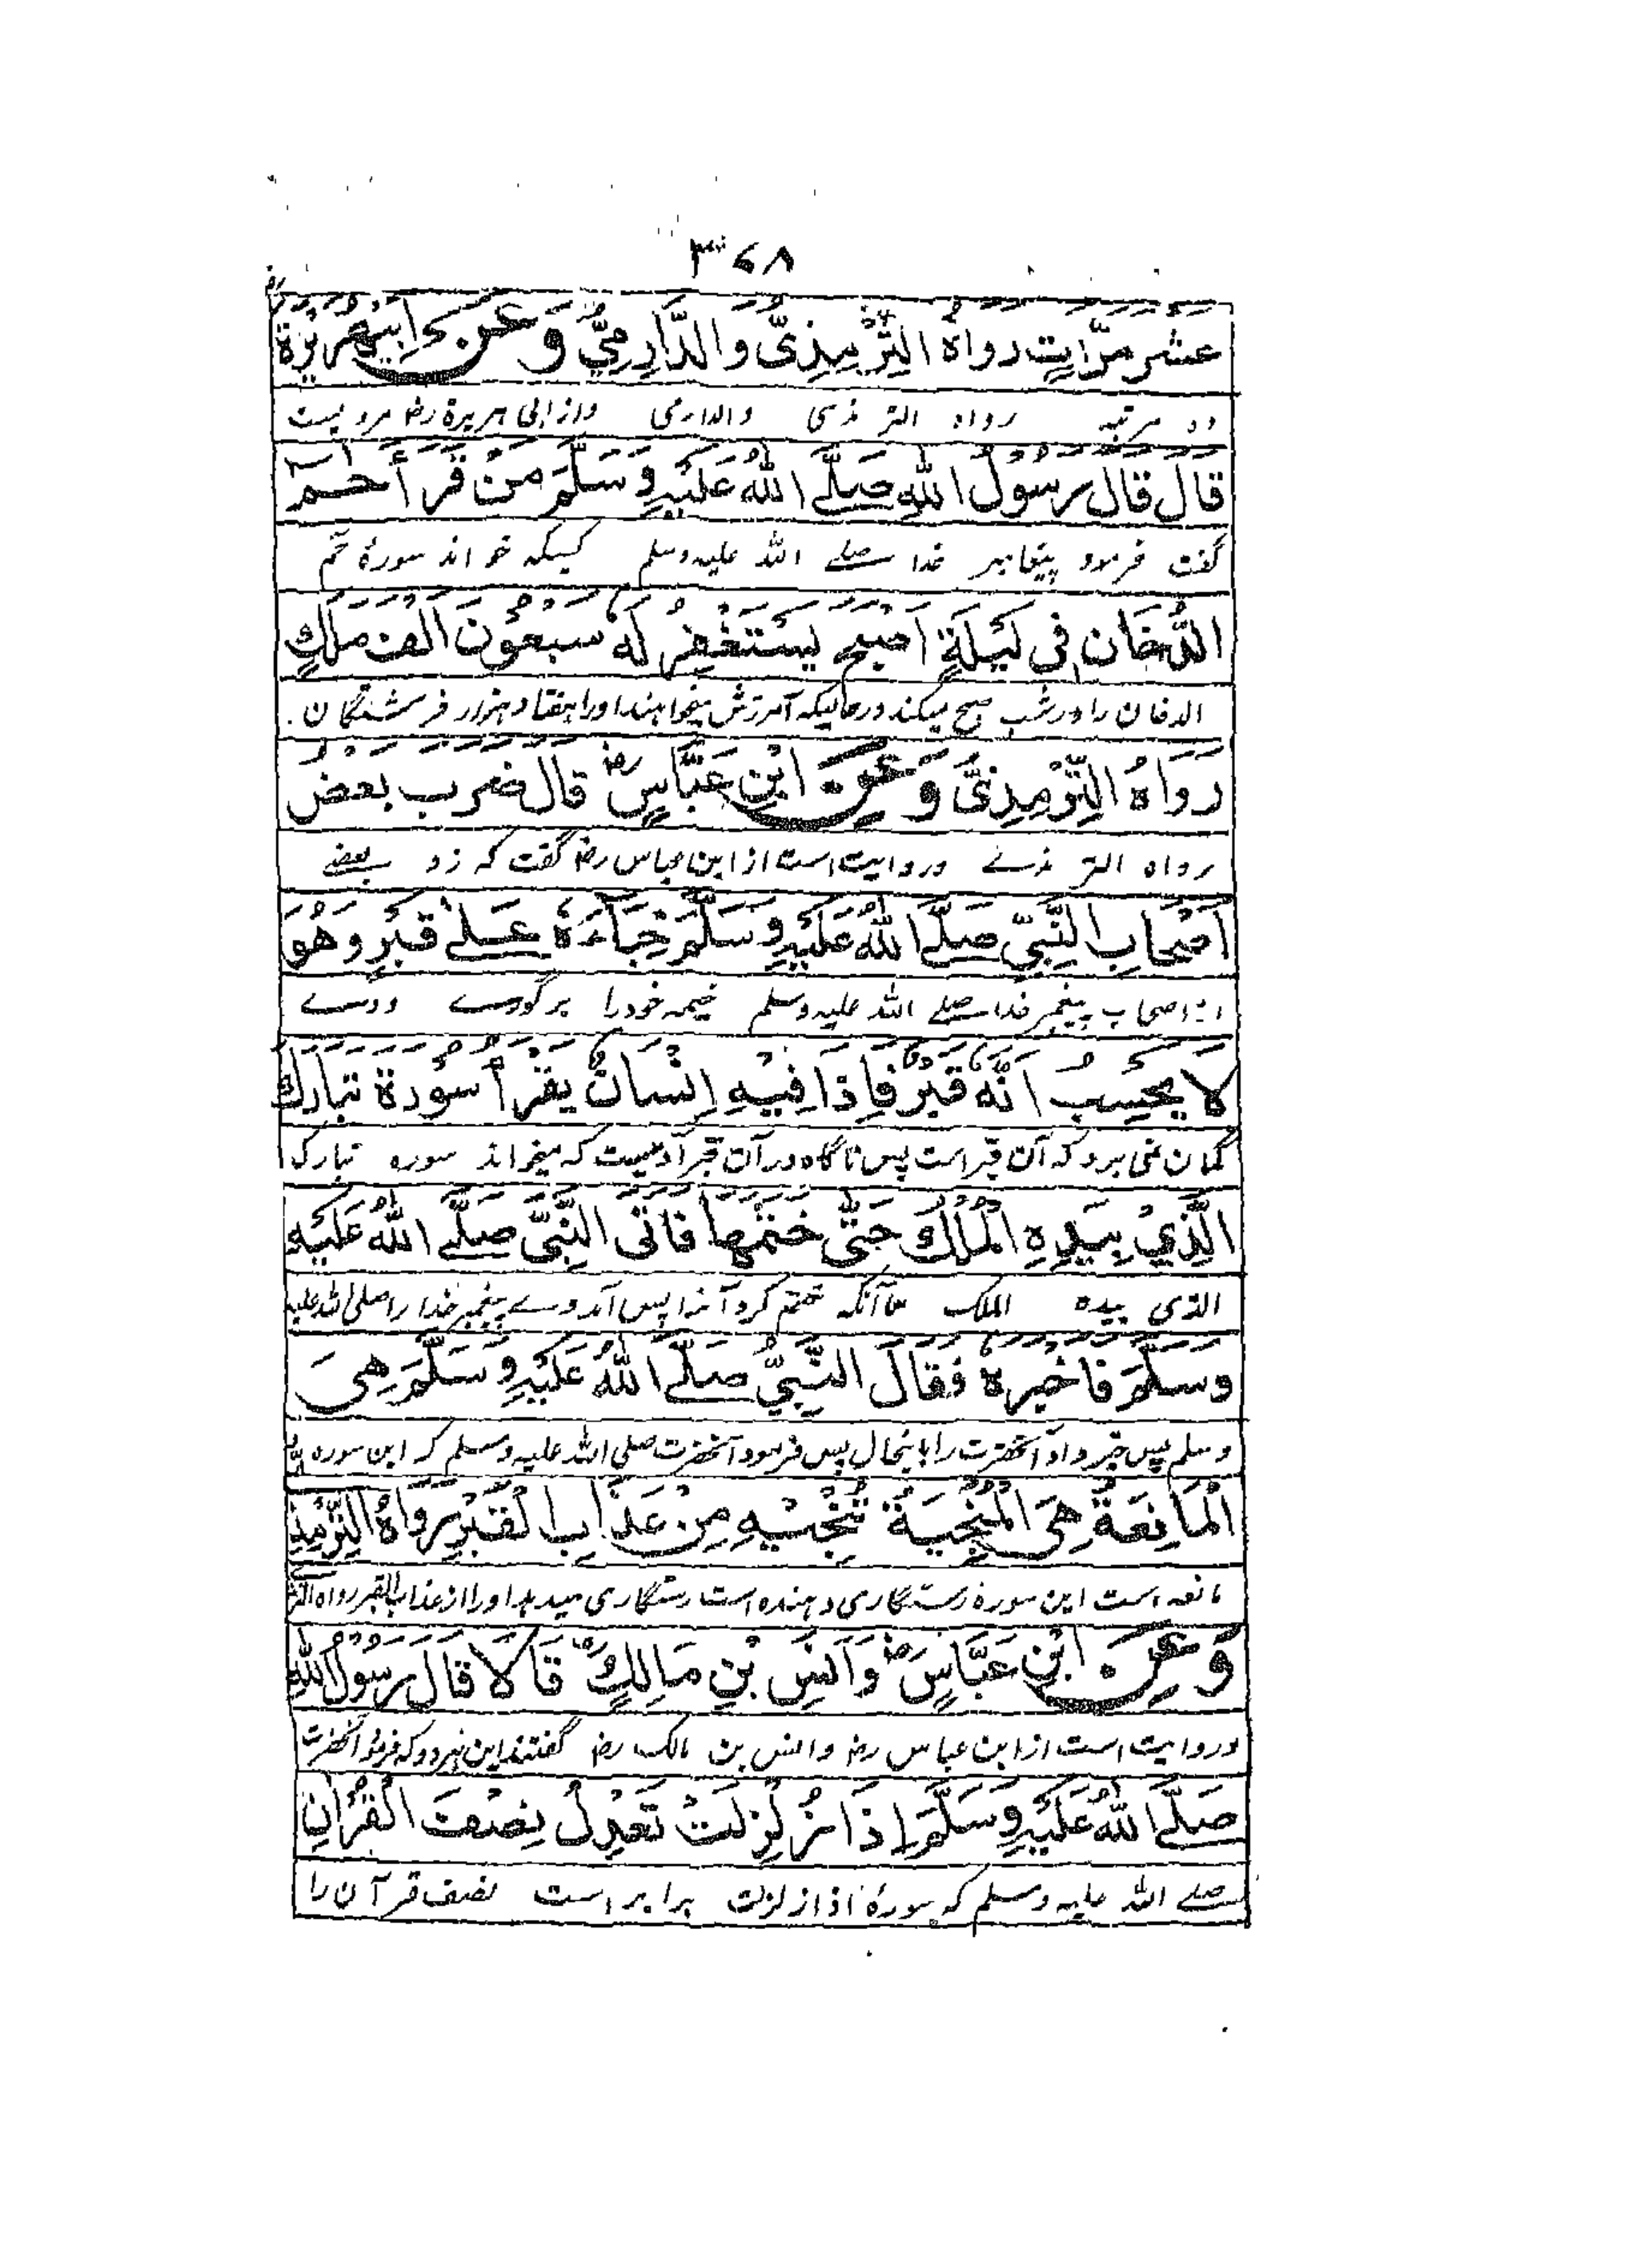 ۳۶۸
عَشَرَ مَرَّاتٍ رَوَاهُ التِّرْمِذِيُّ وَالدَّارِمِيُّ وَعَنْ اَبِيْ هُرَيْرَةَ رض
ده مرتبه رواه الترمذی والدارمی واز ابی هریرة رض مرویست
قَالَ قَالَ رَسُوْلُ اللهِ صَلَّے اللهُ عَلَيْهِ وَسَلَّمَ مَنْ قَرَأَ حٰمٓ
گفت فرمود پیغامبر خدا صلے الله علیه وسلم کسیکه خواند سورۀ حم
الدُّخَانَ فِی لَيْلَةٍ اَصْبَحَ يَسْتَغْفِرُ لَهٗ سَبْعُوْنَ اَلْفَ مَلَكٍ
الدخان را در شب صبح میکند در حالیکه آمرزش میخواهند او را هفتاد هزار فرشتگان.
رَوَاهُ التِّرْمِذِیُّ وَعَنِ ابْنِ عَبَّاسٍ رض قَالَ ضَرَبَ بَعْضُ
رواه الترمذے وروایت است از ابن عباس رض گفت که زد بعضے
اَصْحَابِ النَّبِیِّ صَلَّے اللهُ عَلَيْهِ وَسَلَّمَ خِبَاءَهٗ عَلٰے قَبْرٍ وَهُوَ
از اصحاب پیغمبر خدا صلے الله علیه وسلم خیمه خود را بر گورے ووے
لَا يَحْسِبُ اَنَّهٗ قَبْرٌ فَاِذَا فِيْهِ اِنْسَانٌ يَقْرَأُ سُوْرَةَ تَبَارَكَ
گمان نمی برد که آن قبر است پس ناگاه در آن قبر آدمیست که میخواند سوره تبارک
الَّذِيْ بِيَدِهِ الْمُلْكُ حَتّٰى خَتَمَهَا فَاَتَى النَّبِیَّ صَلَّے اللهُ عَلَيْهِ
الذی بیده الملک تا آنکه ختم کرد آنرا پس آمد وے پیغمبر خدا را صلی الله علیه
وَسَلَّمَ فَاَخْبَرَهٗ فَقَالَ النَّبِيُّ صَلَّے اللهُ عَلَيْهِ وَسَلَّمَ هِیَ
وسلم پس خبر داد آنحضرت را باینحال پس فرمود آنحضرت صلی الله علیه وسلم که این سوره
الْمَانِعَةُ هِیَ الْمُنْجِيَةُ تُنْجِيْهِ مِنْ عَذَابِ الْقَبْرِ رَوَاهُ التِّرْمِذِے
مانعه است این سوره رستگاری دهنده است رستگاری میدهد او را از عذاب القبر رواه
وَعَنِ ابْنِ عَبَّاسٍ رض وَاَنَسِ بْنِ مَالِكٍ رض قَالَا قَالَ رَسُوْلُ اللهِ
وروایت است از ابن عباس رض وانس بن مالک رض گفتند این هردو که فرمود آنحضرت
صَلَّے اللهُ عَلَيْهِ وَسَلَّمَ اِذَا زُلْزِلَتْ تَعْدِلُ نِصْفَ الْقُرْاٰنِ
صلے الله علیه وسلم که سورۀ اذا زلزلت برابر است نصف قرآن را